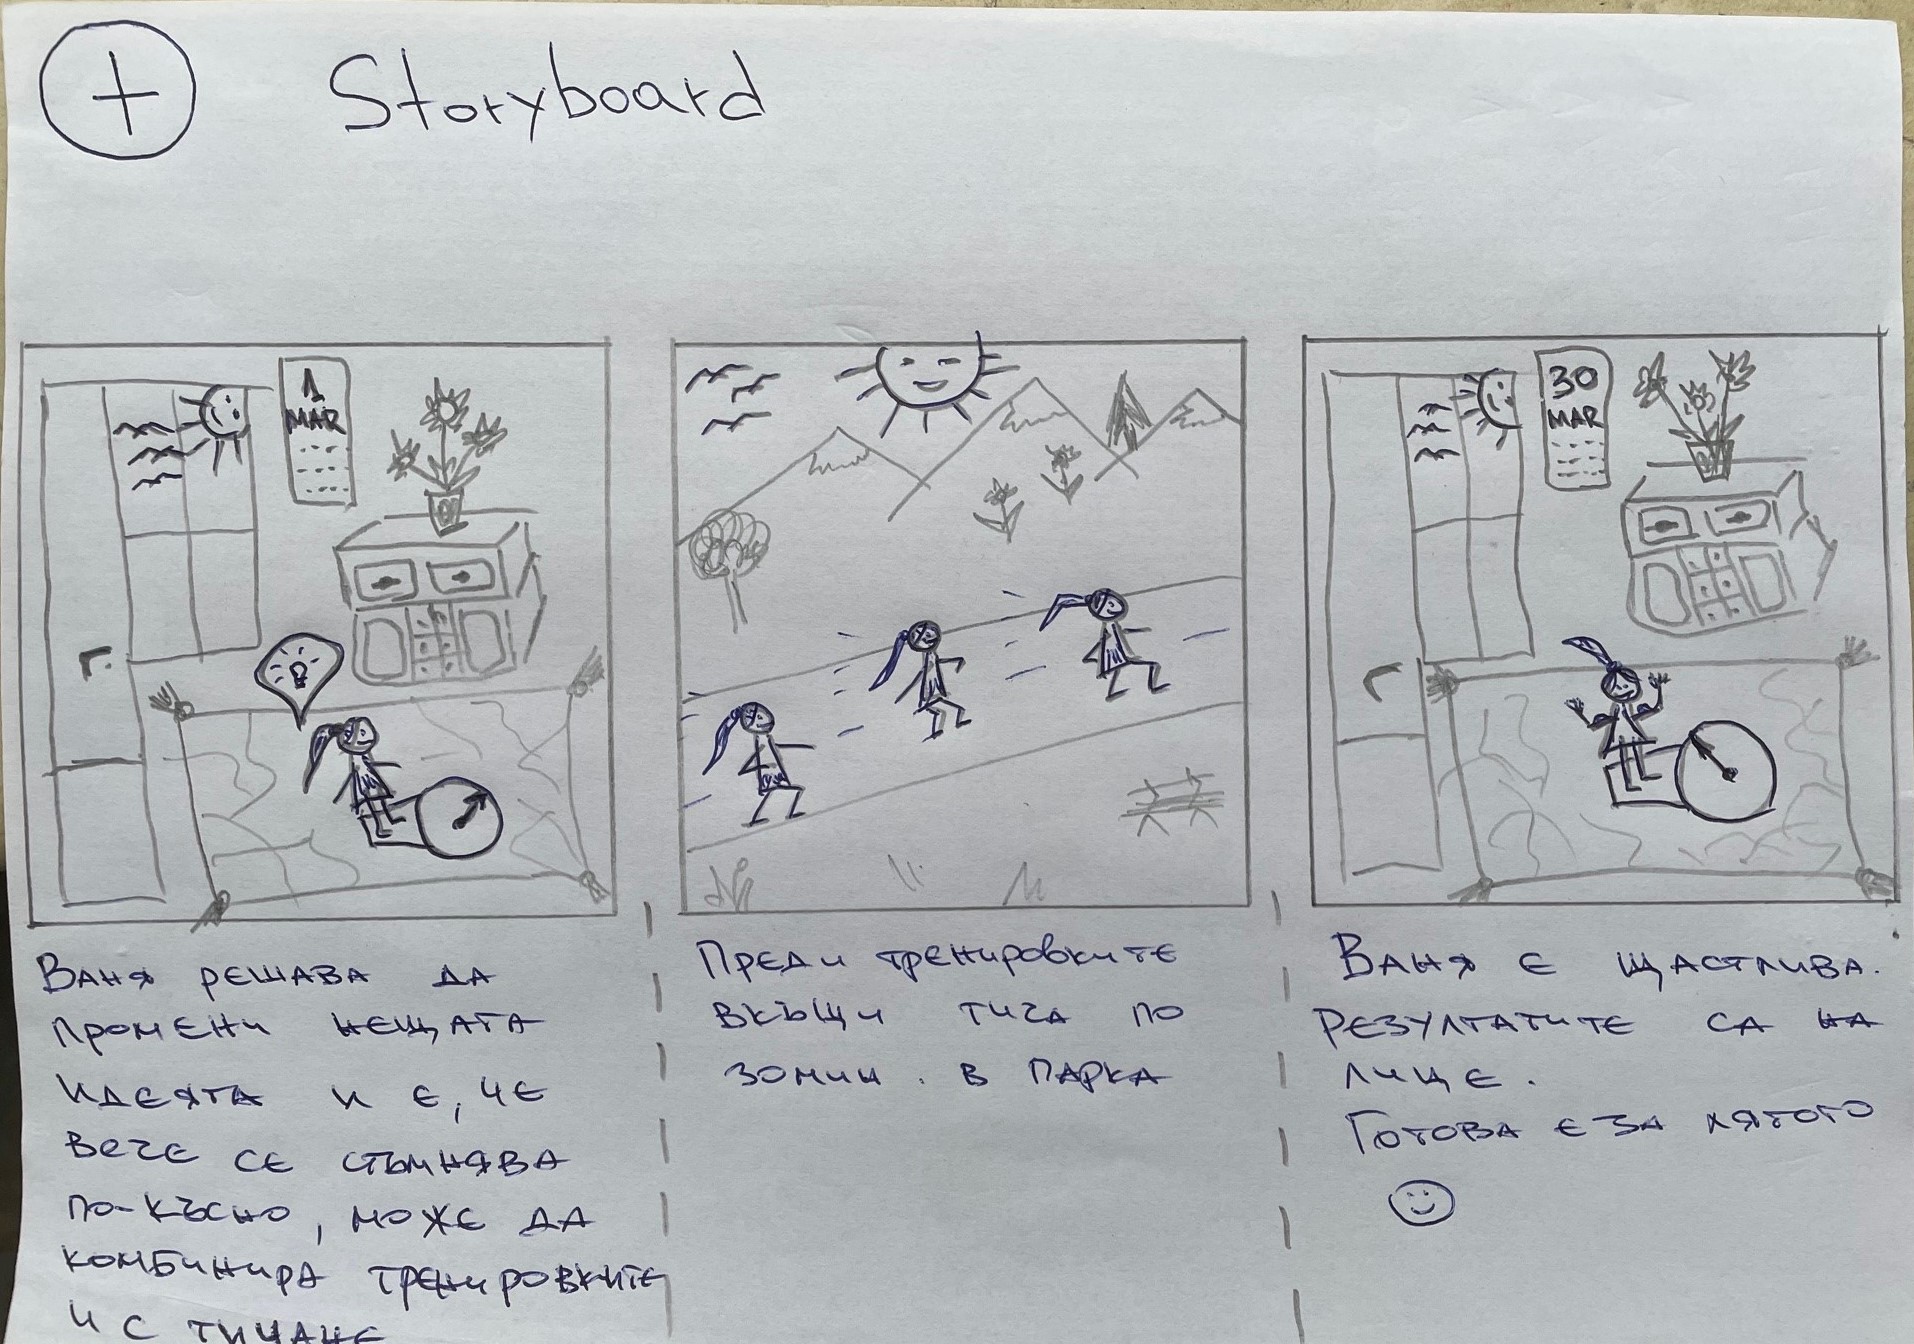 + Storyboard
1
MAR
30
MAR
Ваня решава да
промени нещата
идеята и е, че
вече се стъмнява
по-късно, може да
комбинира тренировките
и с тичане
Преди тренировките
вкъщи тича по
30 мин. в парка
Ваня е щастлива.
Резултатите са на
лице.
Готова е за лятото